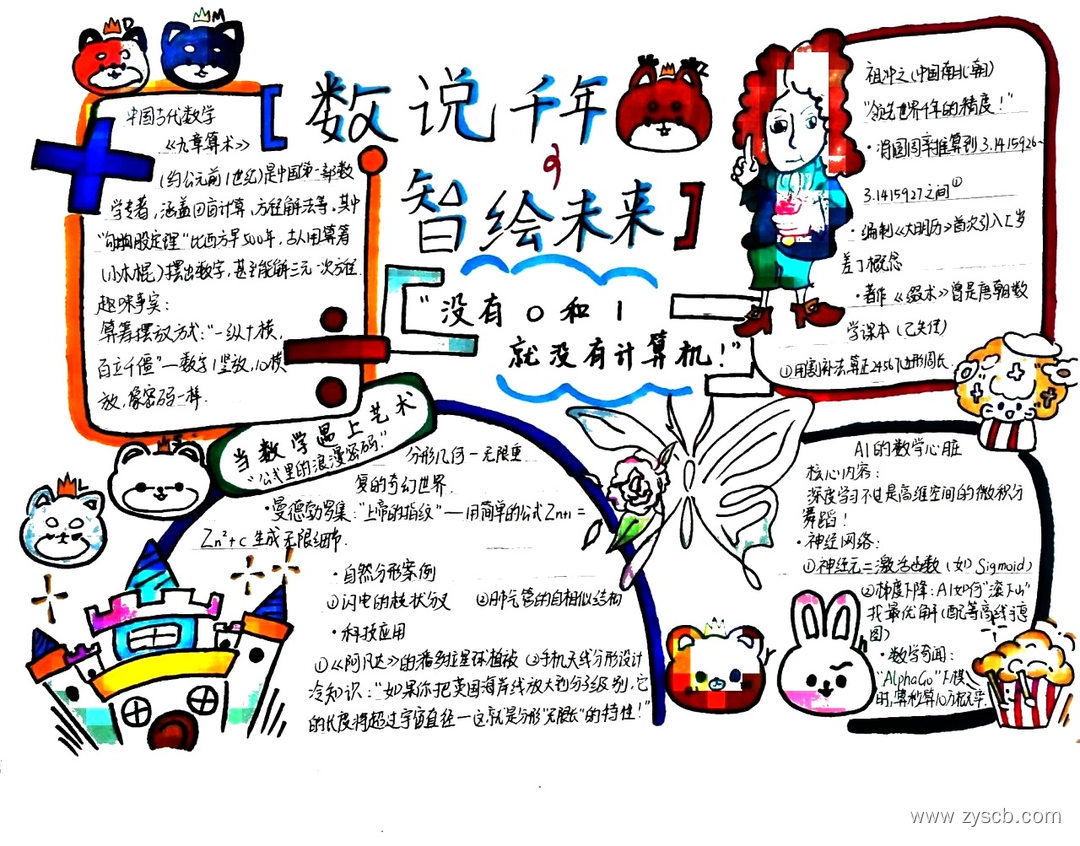 D
M
数说千年
智绘未来
"没有0和1
就没有计算机!"
中国古代数学
《九章算术》
(约公元前1世纪)是中国第一部数
学专著,涵盖面积计算,方程解法等,其中
"勾股定理"比西方早500年,古人用算筹
(小木棍)摆出数字,甚至能解三元一次方程.
趣味事实:
算筹摆放方式:"一纵十横,
百立千僵"—数字1竖放,10横
放,像密码一样.
祖冲之(中国南北朝)
"领先世界千年的精度!"
·将圆周率推算到3.1415926~
3.1415927之间①
·编制《大明历》首次引入"岁
差"概念
·著作《缀术》曾是唐朝数
学课本(已失传)
①用割补法,算正24567边形周长
当数学遇上艺术
"公式里的浪漫密码."
分形几何—无限重
复的奇幻世界.
·曼德勃罗集:"上帝的指纹"—用简单的公式Zn+1=
Zn²+c生成无限细节.
·自然分形案例
①闪电的枝状分叉 ②肺气管的自相似结构
·科技应用
①《阿凡达》的潘多拉星球植被 ②手机天线分形设计
冷知识:"如果你把英国海岸线放大到分子级别,它
的长度将超过宇宙直径—这就是分形"无限长"的特性!"
L
AI的数学心脏
核心内容:
深度学习不过是高维空间的微积分
舞蹈!
·神经网络:
①神经元=激活函数(如Sigmoid)
②梯度下降:AI如何"滚下山"
找最优解(配等高线示意
图)
·数学奇闻:
"AlphaGo"下棋
时,每秒算10万枝概率.
www.zyscb.com